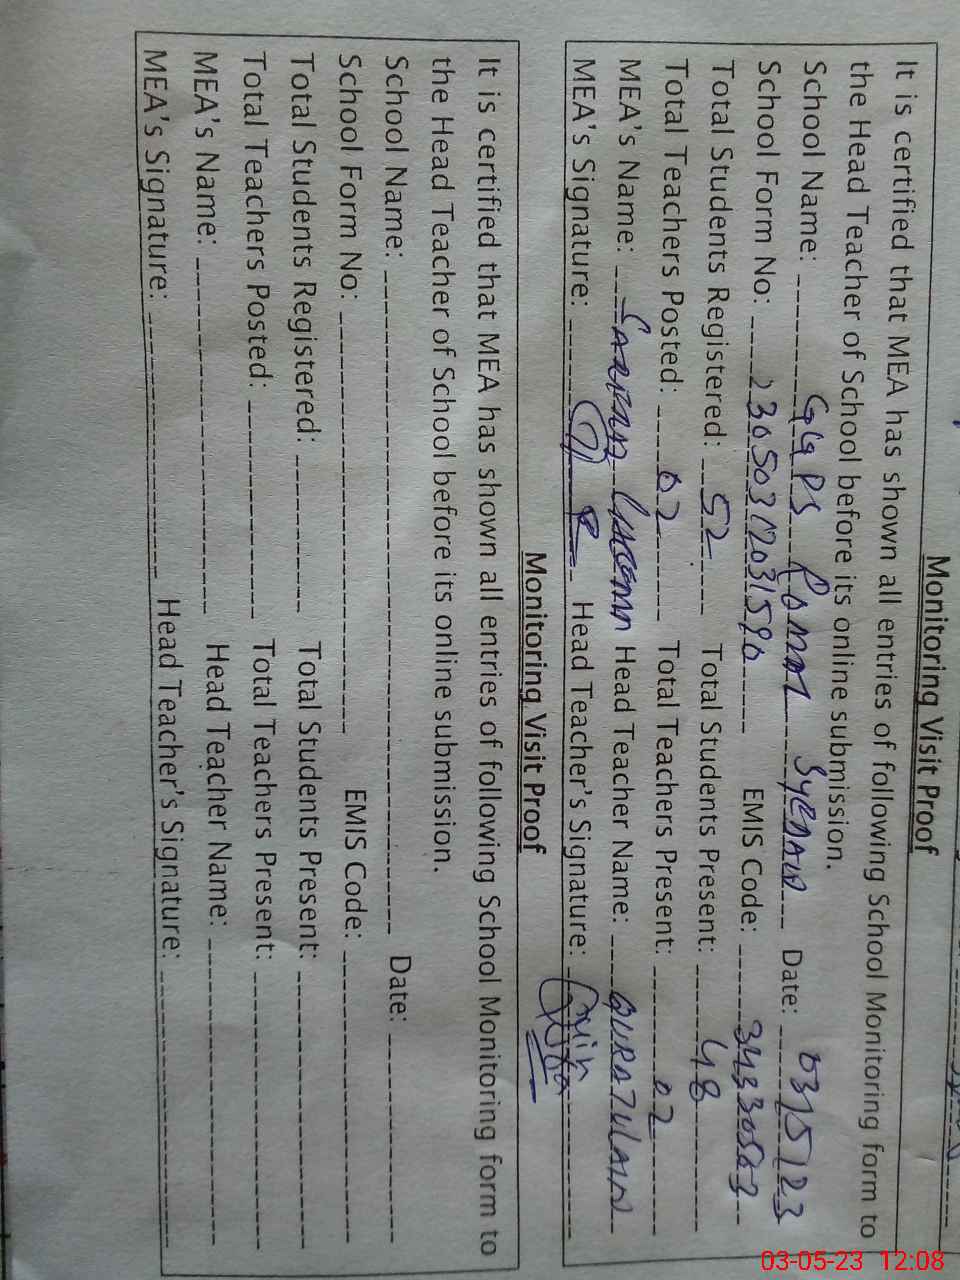 Monitoring Visit Proof
It is certified that MEA has shown all entries of following School Monitoring form to
the Head Teacher of School before its online submission.
School Name: GGPS Date: 03/5/23
School Form No: EMIS Code:
Total Students Registered: 52 Total Students Present: 48
Total Teachers Posted: 02 Total Teachers Present: 02
MEA's Name: Head Teacher Name: QURATULAIN
MEA's Signature: Head Teacher's Signature:
Monitoring Visit Proof
It is certified that MEA has shown all entries of following School Monitoring form to
the Head Teacher of School before its online submission.
School Name: Date:
School Form No: EMIS Code:
Total Students Registered: Total Students Present:
Total Teachers Posted: Total Teachers Present:
MEA's Name: Head Teacher Name:
MEA's Signature: Head Teacher's Signature:
03-05-23 12:08